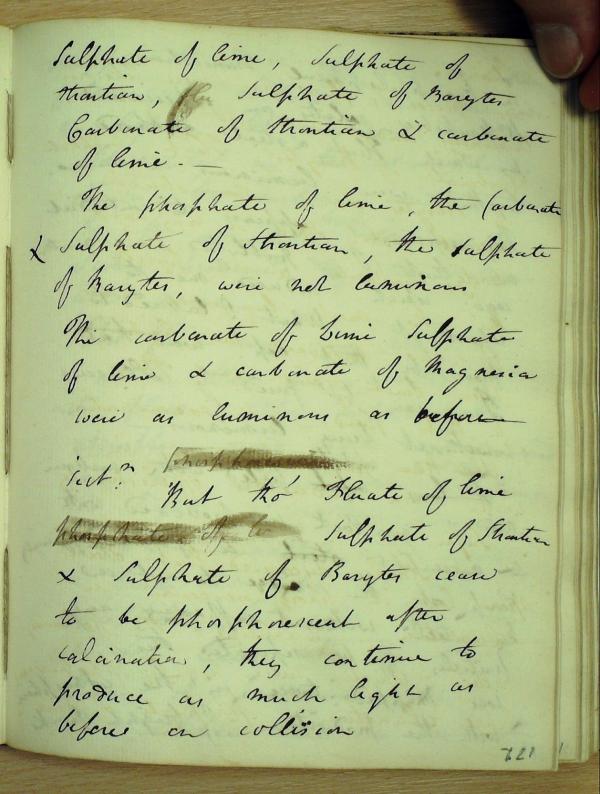 Sulphate of lime, Sulphate of
Strontian, Sulphate of Barytes
Carbonate of Strontian & carbonate
of lime. —
The phosphate of lime, the Carbonate
& Sulphate of Strontian, the sulphate
of Barytes, were not luminous
The carbonate of Lime Sulphate
of lime & carbonate of Magnesia
were as luminous as before
phosphorescence
Sect.n But tho' Fluate of lime
phosphate of li Sulphate of Strontian
& Sulphate of Barytes cease
to be phosphorescent after
calcination, they continue to
produce as much light as
before on collision
121